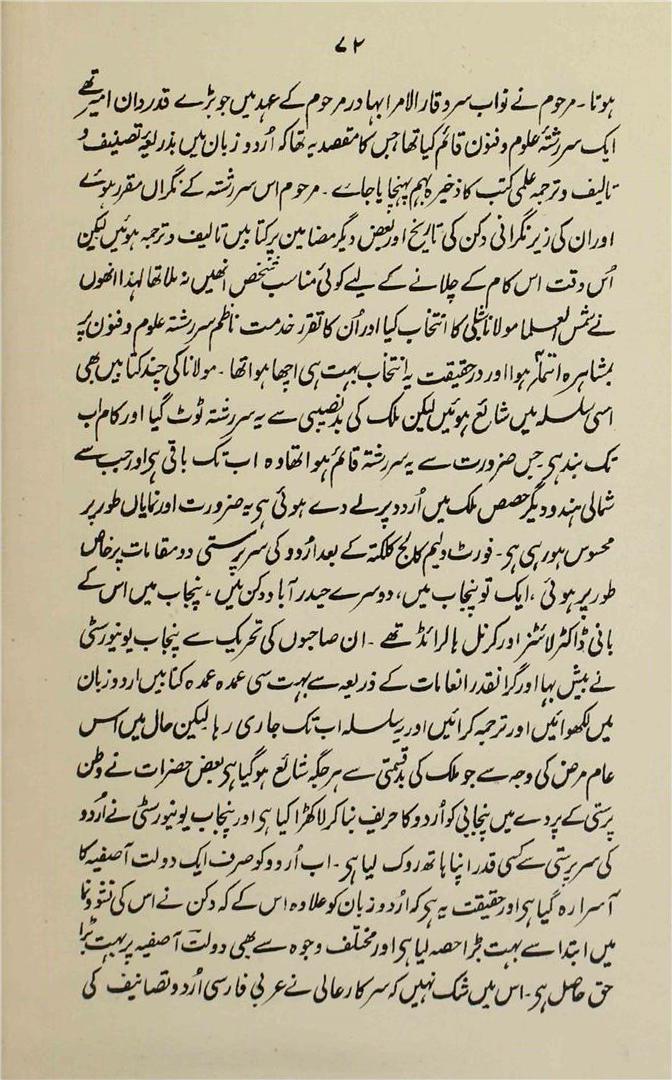 ۷۲
ہوتا۔ مرحوم نے نواب سر وقار الامرا بہادر مرحوم کے عہد میں جو بڑے قدردان امیر تھے
ایک سررشتۂ علوم و فنون قائم کیا تھا جس کا مقصد یہ تھا کہ اُردو زبان میں بذریعۂ تصنیف و
تالیف و ترجمہ علمی کتب کا ذخیرہ بہم پہنچایا جاے۔ مرحوم اس سررشتہ کے نگراں مقرر ہوے
اور ان کی زیر نگرانی دکن کی تاریخ اور بعض دیگر مضامین پر کتابیں تالیف و ترجمہ ہوئیں لیکن
اُس وقت اس کام کے چلانے کے لیے کوئی مناسب شخص انھیں نہ ملا تھا لہذا انھوں
نے شمس العلما مولانا شبلی کا انتخاب کیا اور اُن کا تقرر خدمت ناظم سررشتہ علوم و فنون پر
بمشاہرہ ہوا اور درحقیقت یہ انتخاب بہت ہی اچھا ہوا تھا۔ مولانا کی چند کتابیں بھی
اسی سلسلہ میں شائع ہوئیں لیکن ملک کی بدنصیبی سے یہ سررشتہ ٹوٹ گیا اور کام اب
تک بند ہی۔ جس ضرورت سے یہ سررشتہ قائم ہوا تھا وہ اب تک باقی ہی اور جب سے
شمالی ہند و دیگر حصص ملک میں اُردو پر لے دے ہوئی ہی یہ ضرورت اور نمایاں طور پر
محسوس ہو رہی ہی۔ فورٹ ولیم کالج کلکتہ کے بعد اُردو کی سرپرستی دو مقامات پر خاص
طور پر ہوئی، ایک تو پنجاب میں، دوسرے حیدرآباد دکن میں، پنجاب میں اس کے
بانی ڈاکٹر لائٹنر اور کرنل ہالرائڈ تھے۔ ان صاحبوں کی تحریک سے پنجاب یونیورسٹی
نے بیش بہا اور گرانقدر انعامات کے ذریعہ سے بہت سی عمدہ عمدہ کتابیں اردو زبان
میں لکھوائیں اور ترجمہ کرائیں اور یہ سلسلہ اب تک جاری رہا لیکن حال میں اس
عام مرض کی وجہ سے جو ملک کی بدقیمتی سے ہر جگہ شائع ہو گیا ہی بعض حضرات نے وطن
پرستی کے پردے میں پنجابی کو اُردو کا حریف بنا کر لا کھڑا کیا ہی اور پنجاب یونیورسٹی نے اُردو
کی سرپرستی سے کسی قدر اپنا ہاتھ روک لیا ہی۔ اب اُردو کو صرف ایک دولت آصفیہ کا
آسرا رہ گیا ہی اور حقیقت یہ ہی کہ اردو زبان کو علاوہ اس کے کہ دکن نے اس کی نشو و نما
میں ابتدا سے بہت بڑا حصہ لیا ہی اور مختلف وجوہ سے بھی دولت آصفیہ پر بہت بڑا
حق حاصل ہی۔ اس میں شک نہیں کہ سرکار عالی نے عربی فارسی اُردو تصانیف کی